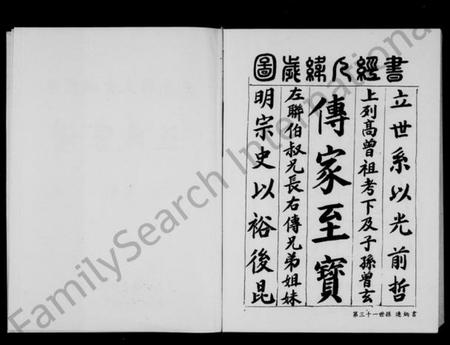 書經緯歲圖
立世系以光前哲
上列高曾祖考下及子孫曾玄
傳家至寶
左聯伯叔兄長右傳兄弟姐妹
明宗史以裕後昆
第三十一世孫 炳書
FamilySearch International